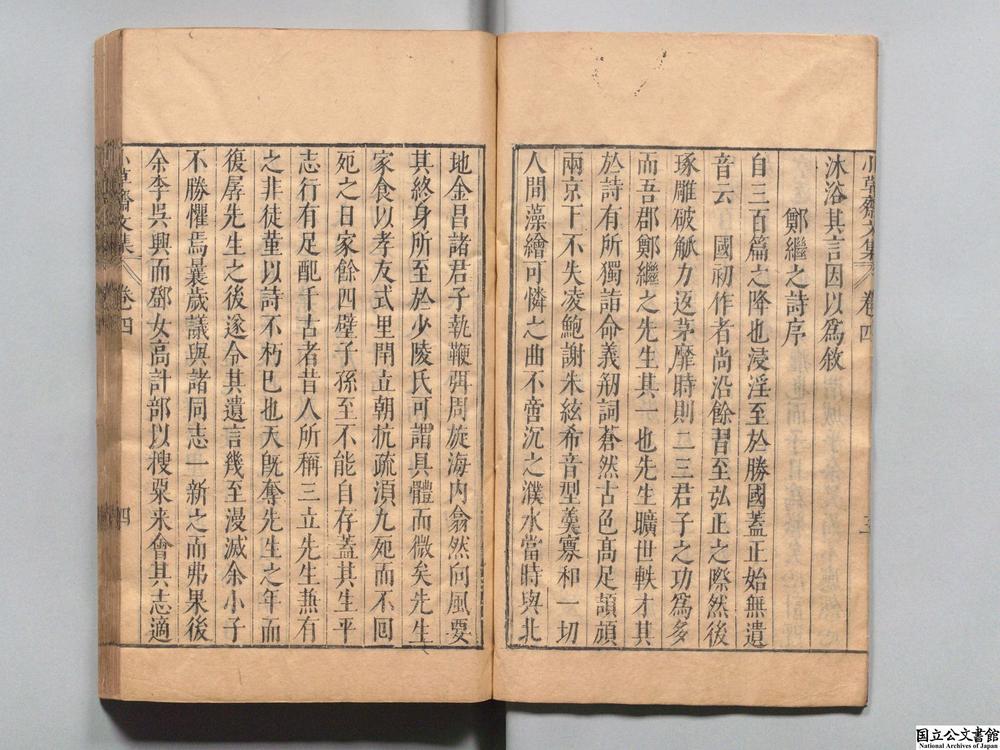 小草齋文集 卷四 三
沐浴其言因以爲敘
鄭繼之詩序
自三百篇之降也浸淫至於勝國蓋正始無遺
音云 國初作者尚沿餘習至弘正之際然後
琢雕破觚力返茅靡時則二三君子之功爲多
而吾郡鄭繼之先生其一也先生曠世軼才其
於詩有所獨詣命義剏詞蒼然古色髙足頡頏
兩京下不失凌鮑謝朱絃希音型羹寡和一切
人間藻繪可憐之曲不啻沉之濮水當時與北
地金昌諸君子執鞭弭周旋海内翕然向風要
其終身所至於少陵氏可謂具體而微矣先生
家食以孝友式里閈立朝抗疏瀕九死而不囘
死之日家餘四壁子孫至不能自存蓋其生平
志行有足配千古者昔人所稱三立先生兼有
之非徒菫以詩不朽已也天旣奪先生之年而
復孱先生之後遂令其遺言幾至漫滅余小子
不勝懼焉曩歲議與諸同志一新之而弗果後
余李吳興而鄧女高計部以搜粟來會其志適
小草齋文集 卷四 四
国立公文書館
National Archives of Japan